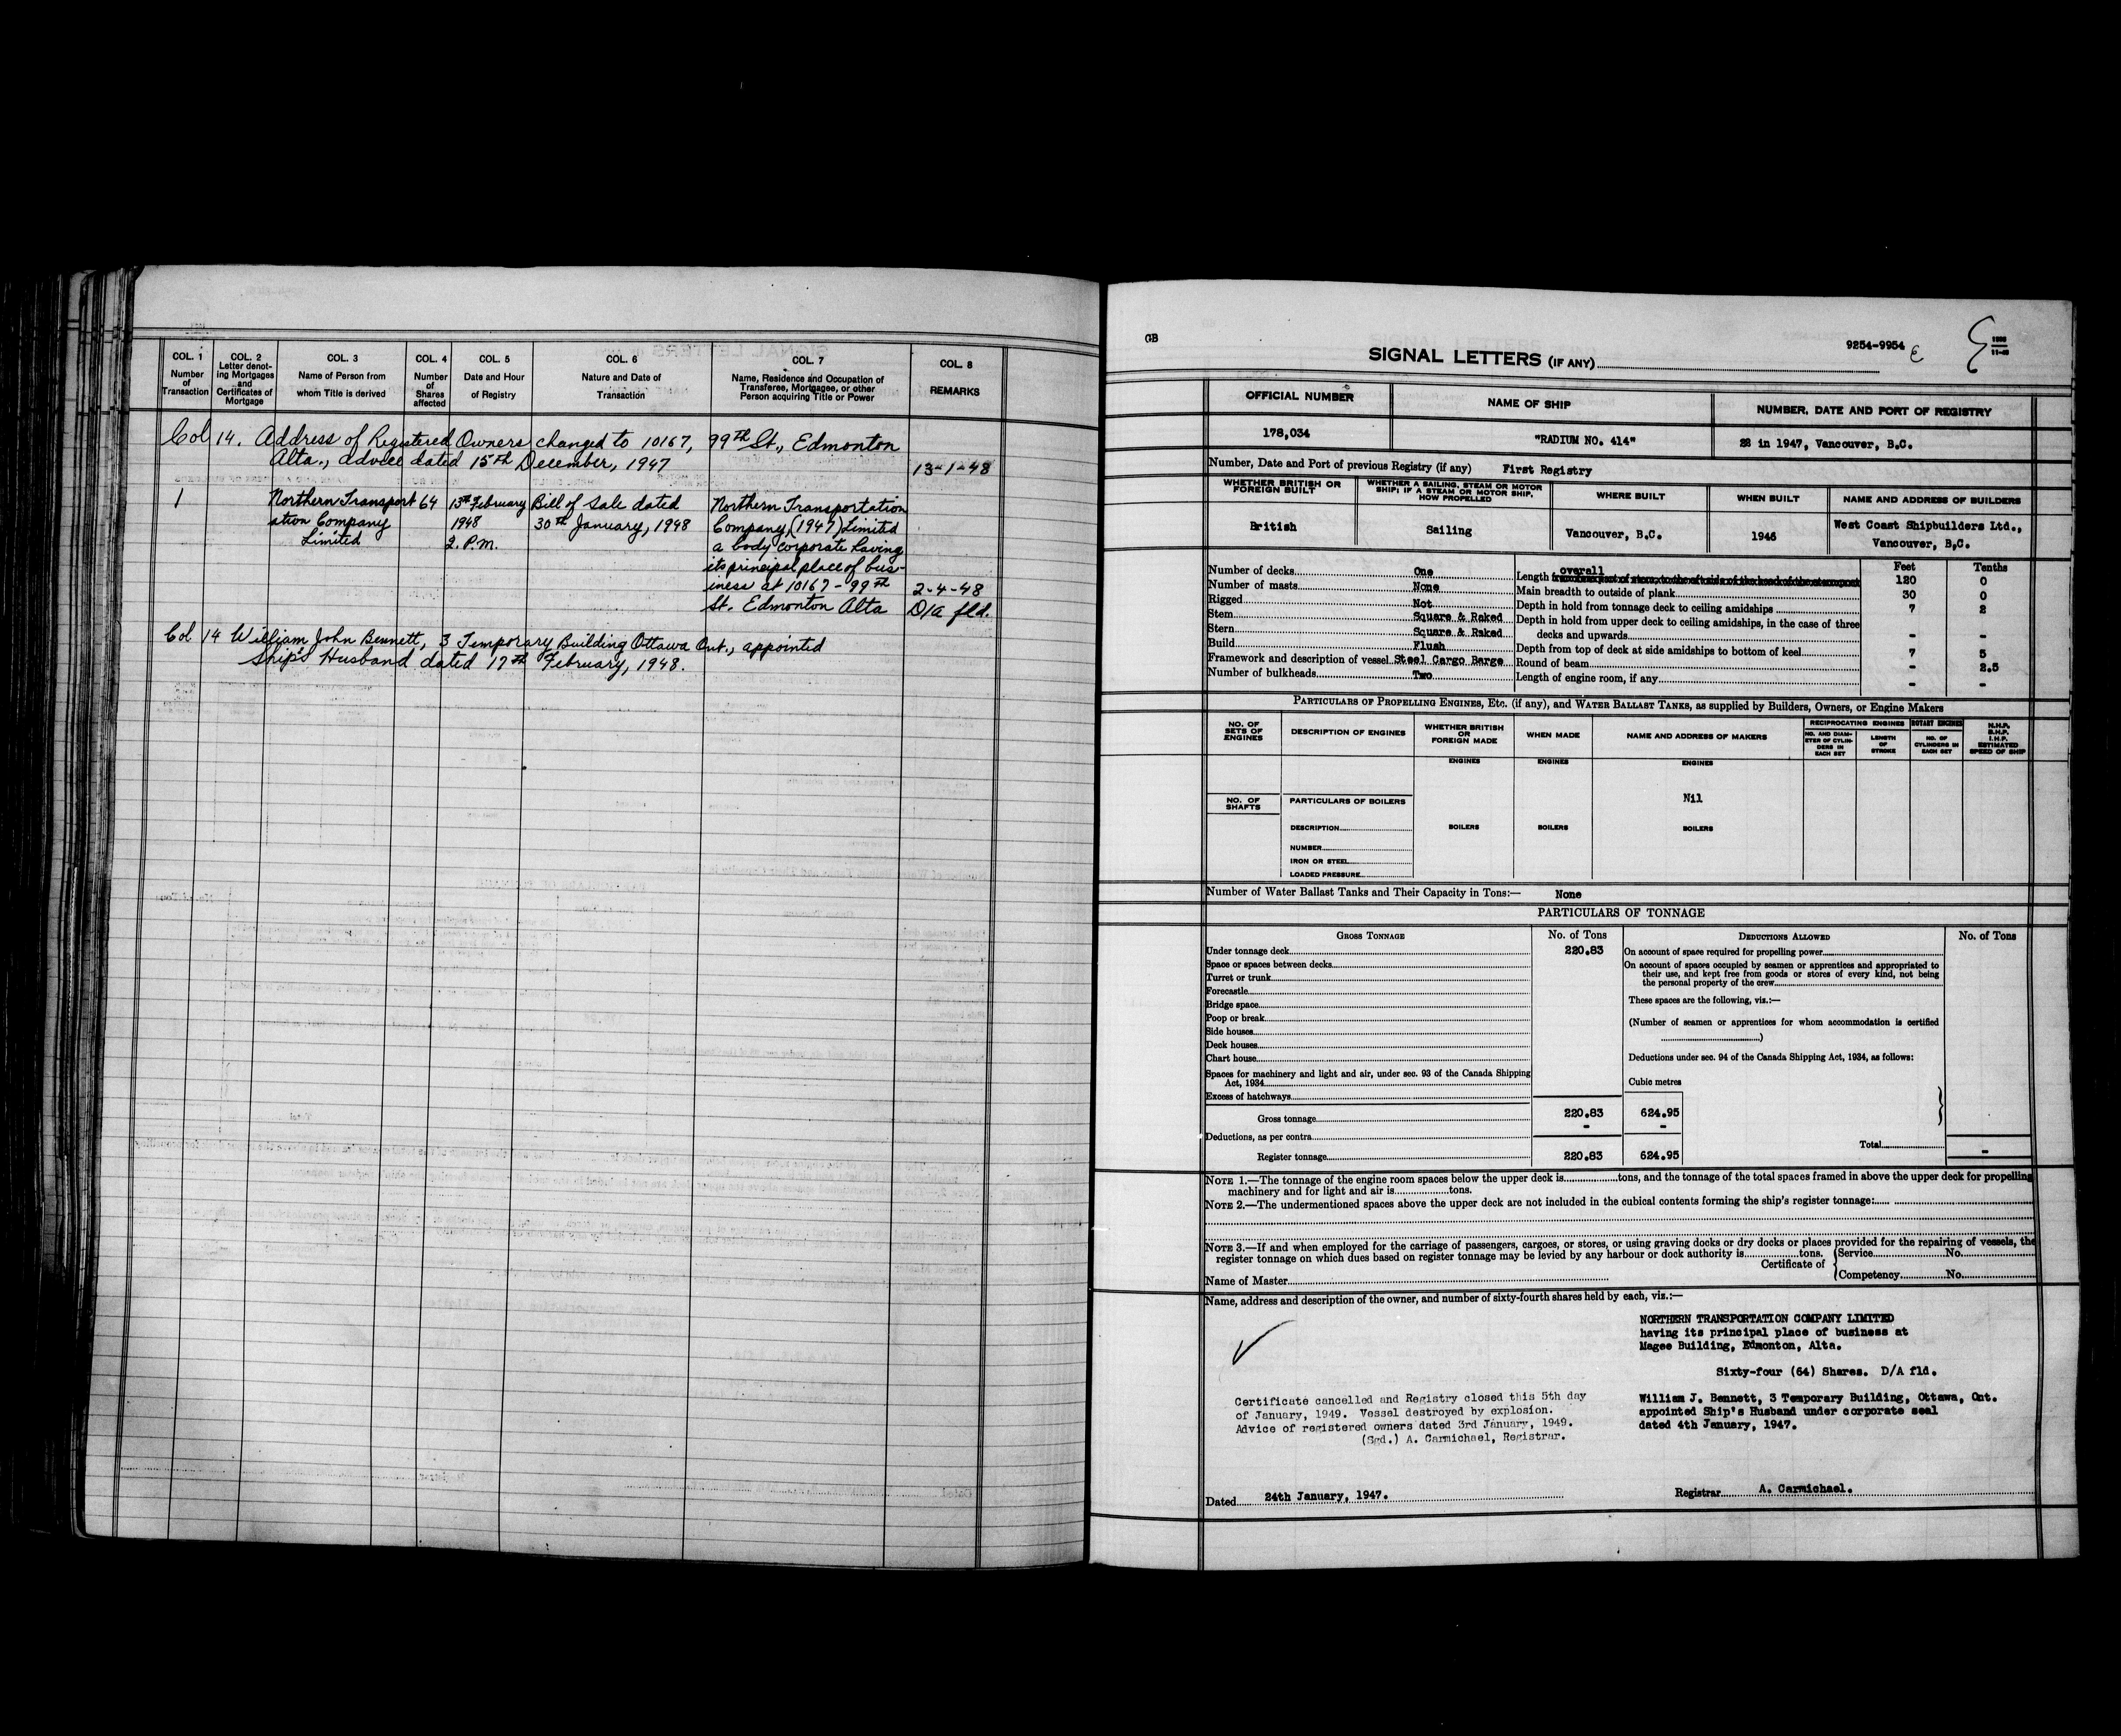 COL. 1 COL. 2 COL. 3 COL. 4 COL. 5 COL. 6 COL. 7 COL. 8
Number of Transaction
Letter denoting Mortgages and Certificates of Mortgage
Name of Person from whom Title is derived
Number of Shares affected
Date and Hour of Registry
Nature and Date of Transaction
Name, Residence and Occupation of Transferee, Mortgagee, or other Person acquiring Title or Power
REMARKS
Col 14. Address of Registered Owners changed to 10167, 99th St., Edmonton
Alta., advice dated 15th December, 1947 13-1-48
1 Northern Transport 64 13th February Bill of Sale dated Northern Transportation
ation Company 1948 30th January, 1948 Company (1947) Limited
Limited 2. P.M. a body corporate having
its principal place of bus-
iness at 10167-99th 2-4-48
St. Edmonton Alta D/A fld.
Col 14 William John Bennett, 3 Temporary Building Ottawa Ont., appointed
Ship's Husband dated 17th February, 1948.
GB
9254-9954 E
SIGNAL LETTERS (IF ANY)
OFFICIAL NUMBER NAME OF SHIP NUMBER, DATE AND PORT OF REGISTRY
178,034 "RADIUM NO. 414" 28 in 1947, Vancouver, B.C.
Number, Date and Port of previous Registry (if any) First Registry
WHETHER BRITISH OR FOREIGN BUILT
WHETHER A SAILING, STEAM OR MOTOR SHIP; IF A STEAM OR MOTOR SHIP, HOW PROPELLED
WHERE BUILT WHEN BUILT NAME AND ADDRESS OF BUILDERS
British Sailing Vancouver, B.C. 1946 West Coast Shipbuilders Ltd.,
Vancouver, B.C.
Feet Tenths
Number of decks One
Number of masts None
Rigged Not
Stem Square & Raked
Stern Square & Raked
Build Flush
Framework and description of vessel Steel Cargo Barge
Number of bulkheads Two
Length overall 120 0
Main breadth to outside of plank 30 0
Depth in hold from tonnage deck to ceiling amidships 7 2
Depth in hold from upper deck to ceiling amidships, in the case of three
decks and upwards - -
Depth from top of deck at side amidships to bottom of keel 7 5
Round of beam - 2.5
Length of engine room, if any - -
PARTICULARS OF PROPELLING ENGINES, ETC. (if any), and WATER BALLAST TANKS, as supplied by Builders, Owners, or Engine Makers
NO. OF SETS OF ENGINES
DESCRIPTION OF ENGINES
WHETHER BRITISH OR FOREIGN MADE
WHEN MADE
NAME AND ADDRESS OF MAKERS
RECIPROCATING ENGINES ROTARY ENGINES
NO. AND DIAMETER OF CYLINDERS IN EACH SET
LENGTH OF STROKE
NO. OF CYLINDERS IN EACH SET
N.H.P. B.H.P. I.H.P. ESTIMATED SPEED OF SHIP
ENGINES ENGINES ENGINES
NO. OF SHAFTS
PARTICULARS OF BOILERS
Nil
DESCRIPTION BOILERS BOILERS BOILERS
NUMBER
IRON OR STEEL
LOADED PRESSURE
Number of Water Ballast Tanks and Their Capacity in Tons:— None
PARTICULARS OF TONNAGE
GROSS TONNAGE No. of Tons DEDUCTIONS ALLOWED No. of Tons
Under tonnage deck 220.83
Space or spaces between decks
Turret or trunk
Forecastle
Bridge space
Poop or break
Side houses
Deck houses
Chart house
Spaces for machinery and light and air, under sec. 93 of the Canada Shipping
Act, 1934
Excess of hatchways
Gross tonnage 220.83 624.95
Deductions, as per contra - -
Register tonnage 220.83 624.95
On account of space required for propelling power
On account of spaces occupied by seamen or apprentices and appropriated to
their use, and kept free from goods or stores of every kind, not being
the personal property of the crew
These spaces are the following, viz.:—
(Number of seamen or apprentices for whom accommodation is certified
)
Deductions under sec. 94 of the Canada Shipping Act, 1934, as follows:
Cubic metres
Total -
NOTE 1.—The tonnage of the engine room spaces below the upper deck is tons, and the tonnage of the total spaces framed in above the upper deck for propelling
machinery and for light and air is tons.
NOTE 2.—The undermentioned spaces above the upper deck are not included in the cubical contents forming the ship's register tonnage:
NOTE 3.—If and when employed for the carriage of passengers, cargoes, or stores, or using graving docks or dry docks or places provided for the repairing of vessels, the
register tonnage on which dues based on register tonnage may be levied by any harbour or dock authority is tons.
Certificate of Service No.
Competency No.
Name of Master
Name, address and description of the owner, and number of sixty-fourth shares held by each, viz.:—
NORTHERN TRANSPORTATION COMPANY LIMITED
having its principal place of business at
Magee Building, Edmonton, Alta.
Sixty-four (64) Shares. D/A fld.
William J. Bennett, 3 Temporary Building, Ottawa, Ont.
appointed Ship's Husband under corporate seal
dated 4th January, 1947.
Certificate cancelled and Registry closed this 5th day
of January, 1949. Vessel destroyed by explosion.
Advice of registered owners dated 3rd January, 1949.
(Sgd.) A. Carmichael, Registrar.
Dated 24th January, 1947.
Registrar A. Carmichael.